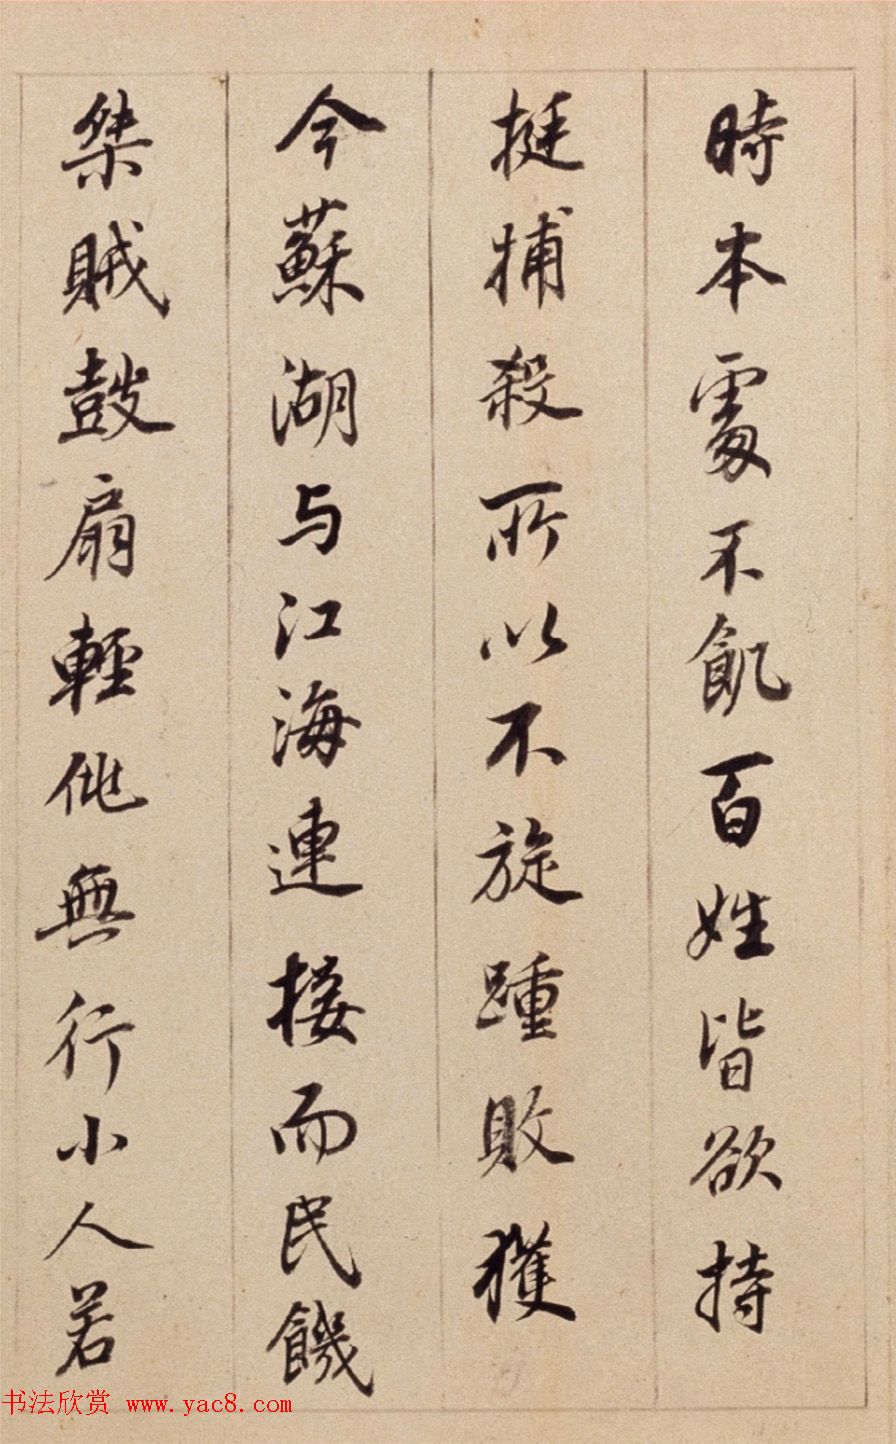 時本處不飢百姓皆欲持
挺捕殺所以不旋踵敗獲
今蘇湖与江海連接而民饑
桀賊鼓扇輕佻無行小人若
书法欣赏 www.yac8.com